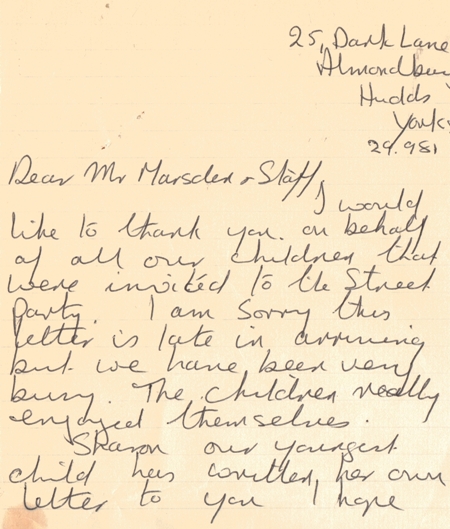 25, Dark Lane
Almondbury
Hudds
Yorks
29.9.81
Dear Mr Marsden & Staff,
I would
like to thank you on behalf
of all our children that
were invited to the Street
party. I am sorry this
letter is late in arriving
but we have been very
busy. The children really
enjoyed themselves.
Sharon our youngest
child has written, her own
letter to you I hope